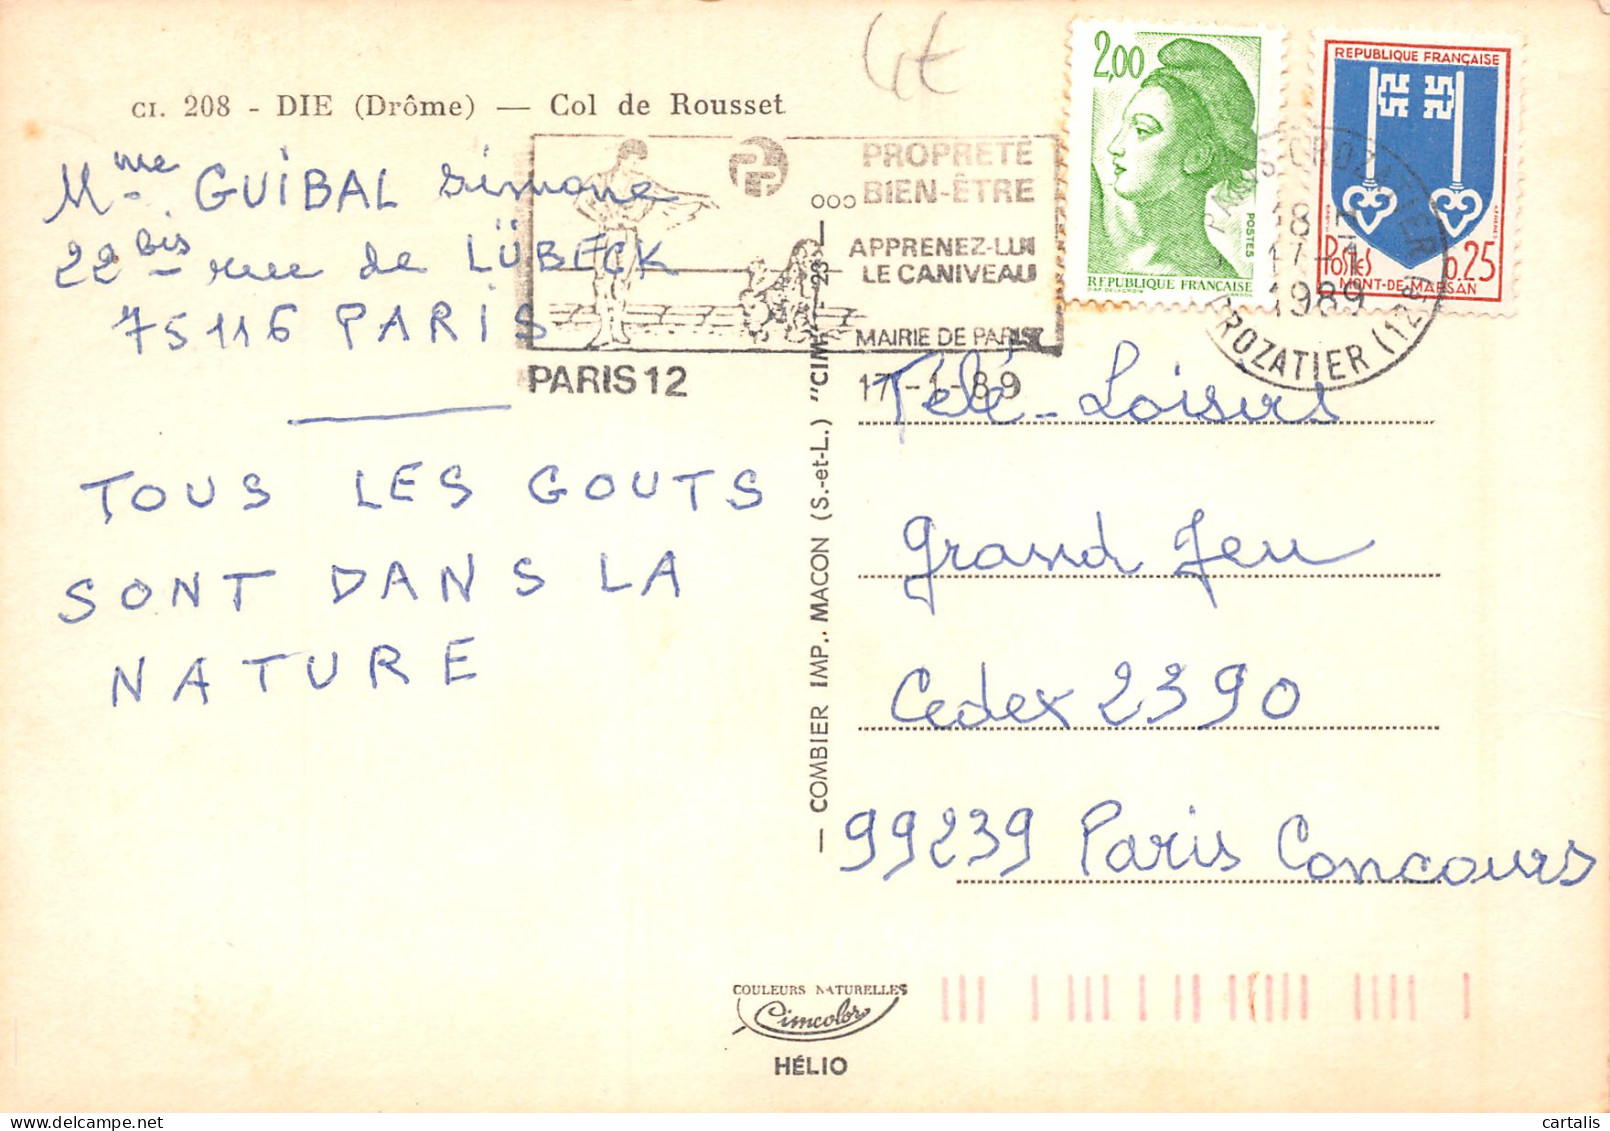 4€
CI. 208 - DIE (Drôme) — Col de Rousset
Mme GUIBAL Simone
22 bis rue de LÜBECK
75116 PARIS
TOUS LES GOUTS
SONT DANS LA
NATURE
PROPRETÉ
ooo BIEN-ÊTRE
APPRENEZ-LUI
LE CANIVEAU
MAIRIE DE PARIS
PARIS 12
17-1-89
2,00
POSTES
REPUBLIQUE FRANÇAISE
REPUBLIQUE FRANÇAISE
POSTES 0.25
MONT-DE-MARSAN
PARIS CROZATIER
18 H
17-1
1989
CROZATIER (12e)
— COMBIER IMP. MACON (S.-et-L.) "CIM" — 23 —
Télé-Loisirs
grand Jeu
Cedex 2390
99239 Paris Concours
COULEURS NATURELLES
Cimcolor
HÉLIO
cartalis
www.delcampe.net